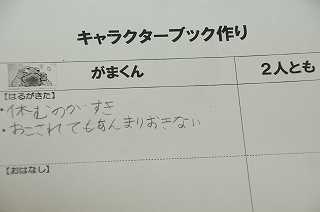 キャラクターブック作り
がまくん
2人とも
【はるがきた】
・休むのがすき
・おこされてもあんまりおきない
【おはなし】